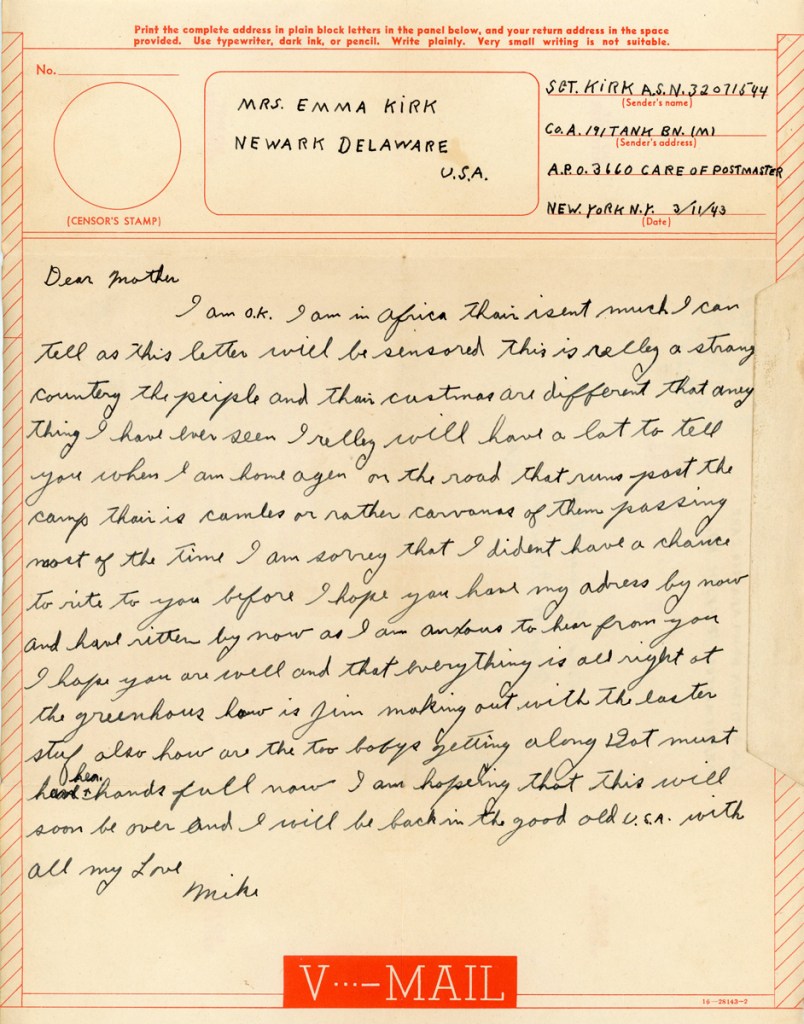 Print the complete address in plain block letters in the panel below, and your return address in the space
provided. Use typewriter, dark ink, or pencil. Write plainly. Very small writing is not suitable.
No.
(CENSOR'S STAMP)
MRS. EMMA KIRK
NEWARK DELAWARE
U.S.A.
SGT. KIRK A.S.N. 32071544
(Sender's name)
CO. A. 191 TANK BN. (M)
(Sender's address)
A.P.O. 3660 CARE OF POSTMASTER
NEW. YORK N.Y. 3/11/43
(Date)
Dear Mother
I am O.K. I am in africa thair isent much I can
tell as this letter will be sensored this is relley a strang
countery the peiple and thair custmas are different that aney
thing I have ever seen I relley will have a lat to tell
you when I am home agen on the road that runs past the
camp thair is camles or rather carvanas of them passing
most of the time I am sorrey that I dident have a chance
to rite to you before I hope you have my adress by now
and have ritten by now as I am anxous to hear from you
I hope you are well and that everything is all right at
the greenhous how is Jim making out with the easter
stuf also how are the too babys getting along Dot must
have her hands full now I am hopeing that this will
soon be over and I will be back in the good old U.S.A. with
all my Love
Mike
V···—MAIL
16—28143-2